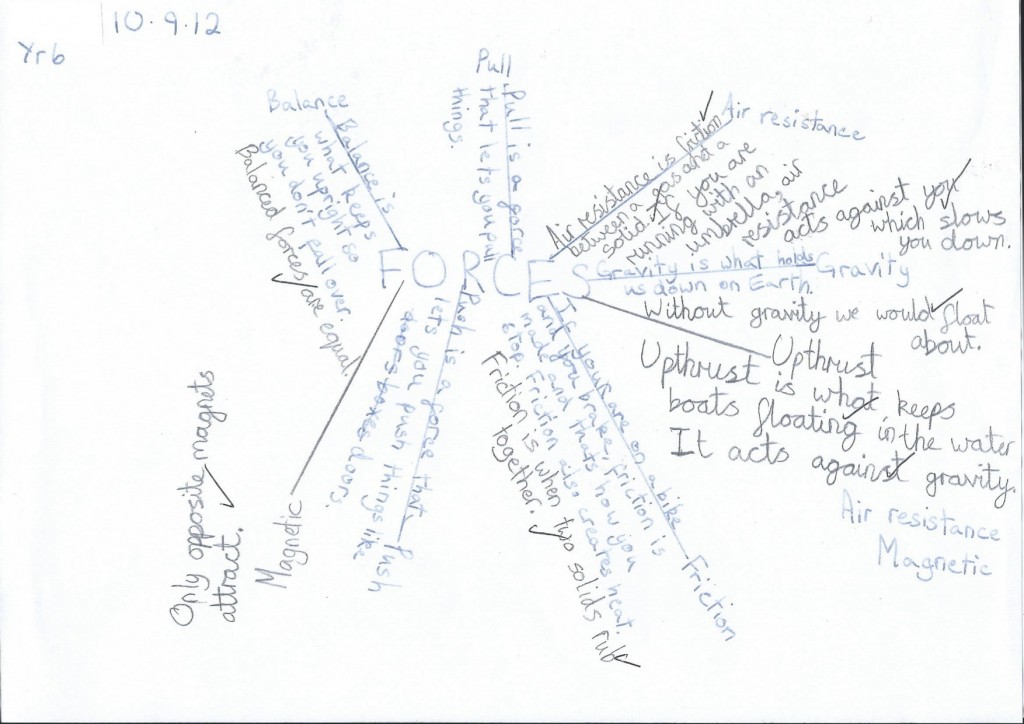 10.9.12
Yr6
Balance
Balance is
what keeps
you upright so
you don't fall over.
Balanced forces are equal.
Pull
Pull is a force
that lets you pull
things.
Air resistance
Air resistance is friction
between a gas and a
solid. If you are
running with an
umbrella, air
resistance
acts against you
which slows
you down.
FORCES
Gravity is what holds
us down on Earth.
Gravity
Without gravity we would float
about.
Upthrust
Upthrust is what keeps
boats floating in the water
It acts against gravity.
Air resistance
Magnetic
If your are on a bike
and you brake, friction is
made and thats how you
stop. Friction also creates heat.
Friction is when two solids rub
together.
Friction
Push is a force that
lets you push things like
doors.
Push
Magnetic
Only opposite magnets
attract.